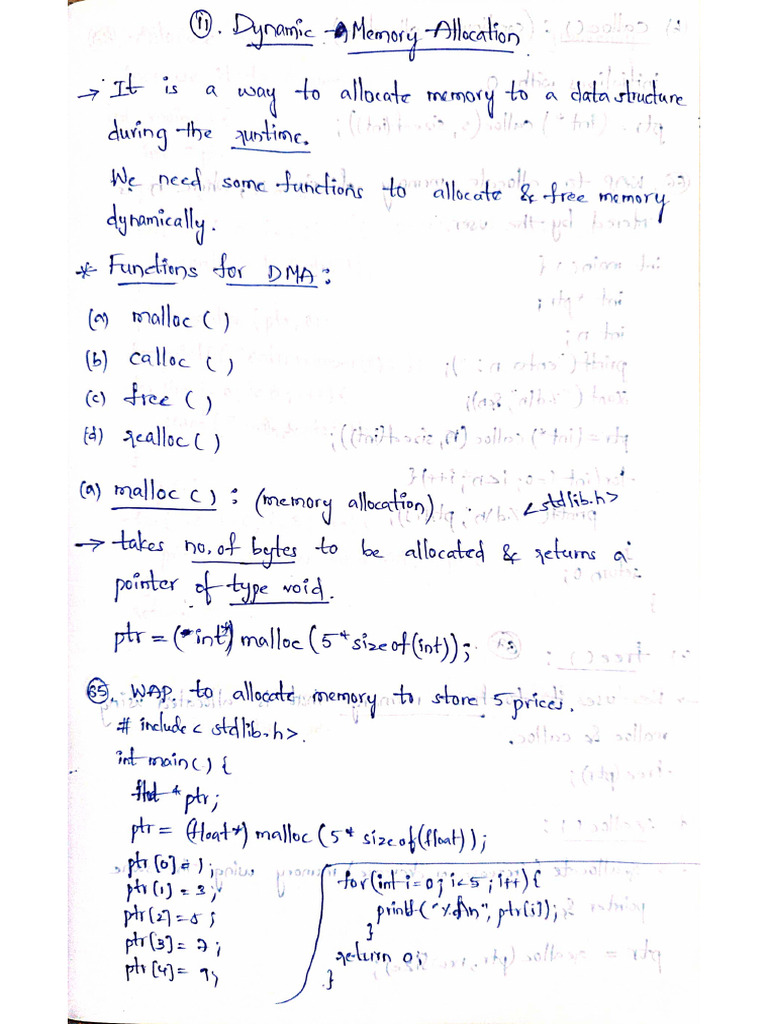 11. Dynamic Memory Allocation
→ It is a way to allocate memory to a data structure
during the runtime.
We need some functions to allocate & free memory
dynamically.
* Functions for DMA:
(a) malloc ( )
(b) calloc ( )
(c) free ( )
(d) realloc ( )
(a) malloc ( ) : (memory allocation) <stdlib.h>
→ takes no. of bytes to be allocated & returns a
pointer of type void.
ptr = (int*) malloc (5 * sizeof(int));
65. WAP. to allocate memory to store 5 prices.
# include < stdlib.h>.
int main() {
float * ptr;
ptr = (float*) malloc (5 * sizeof(float));
ptr [0] = 1;
ptr [1] = 3;
ptr [2] = 5;
ptr [3] = 7;
ptr [4] = 9;
for (int i=0; i<5; i++) {
printf ("%d\n", ptr[i]);
}
return 0;
}